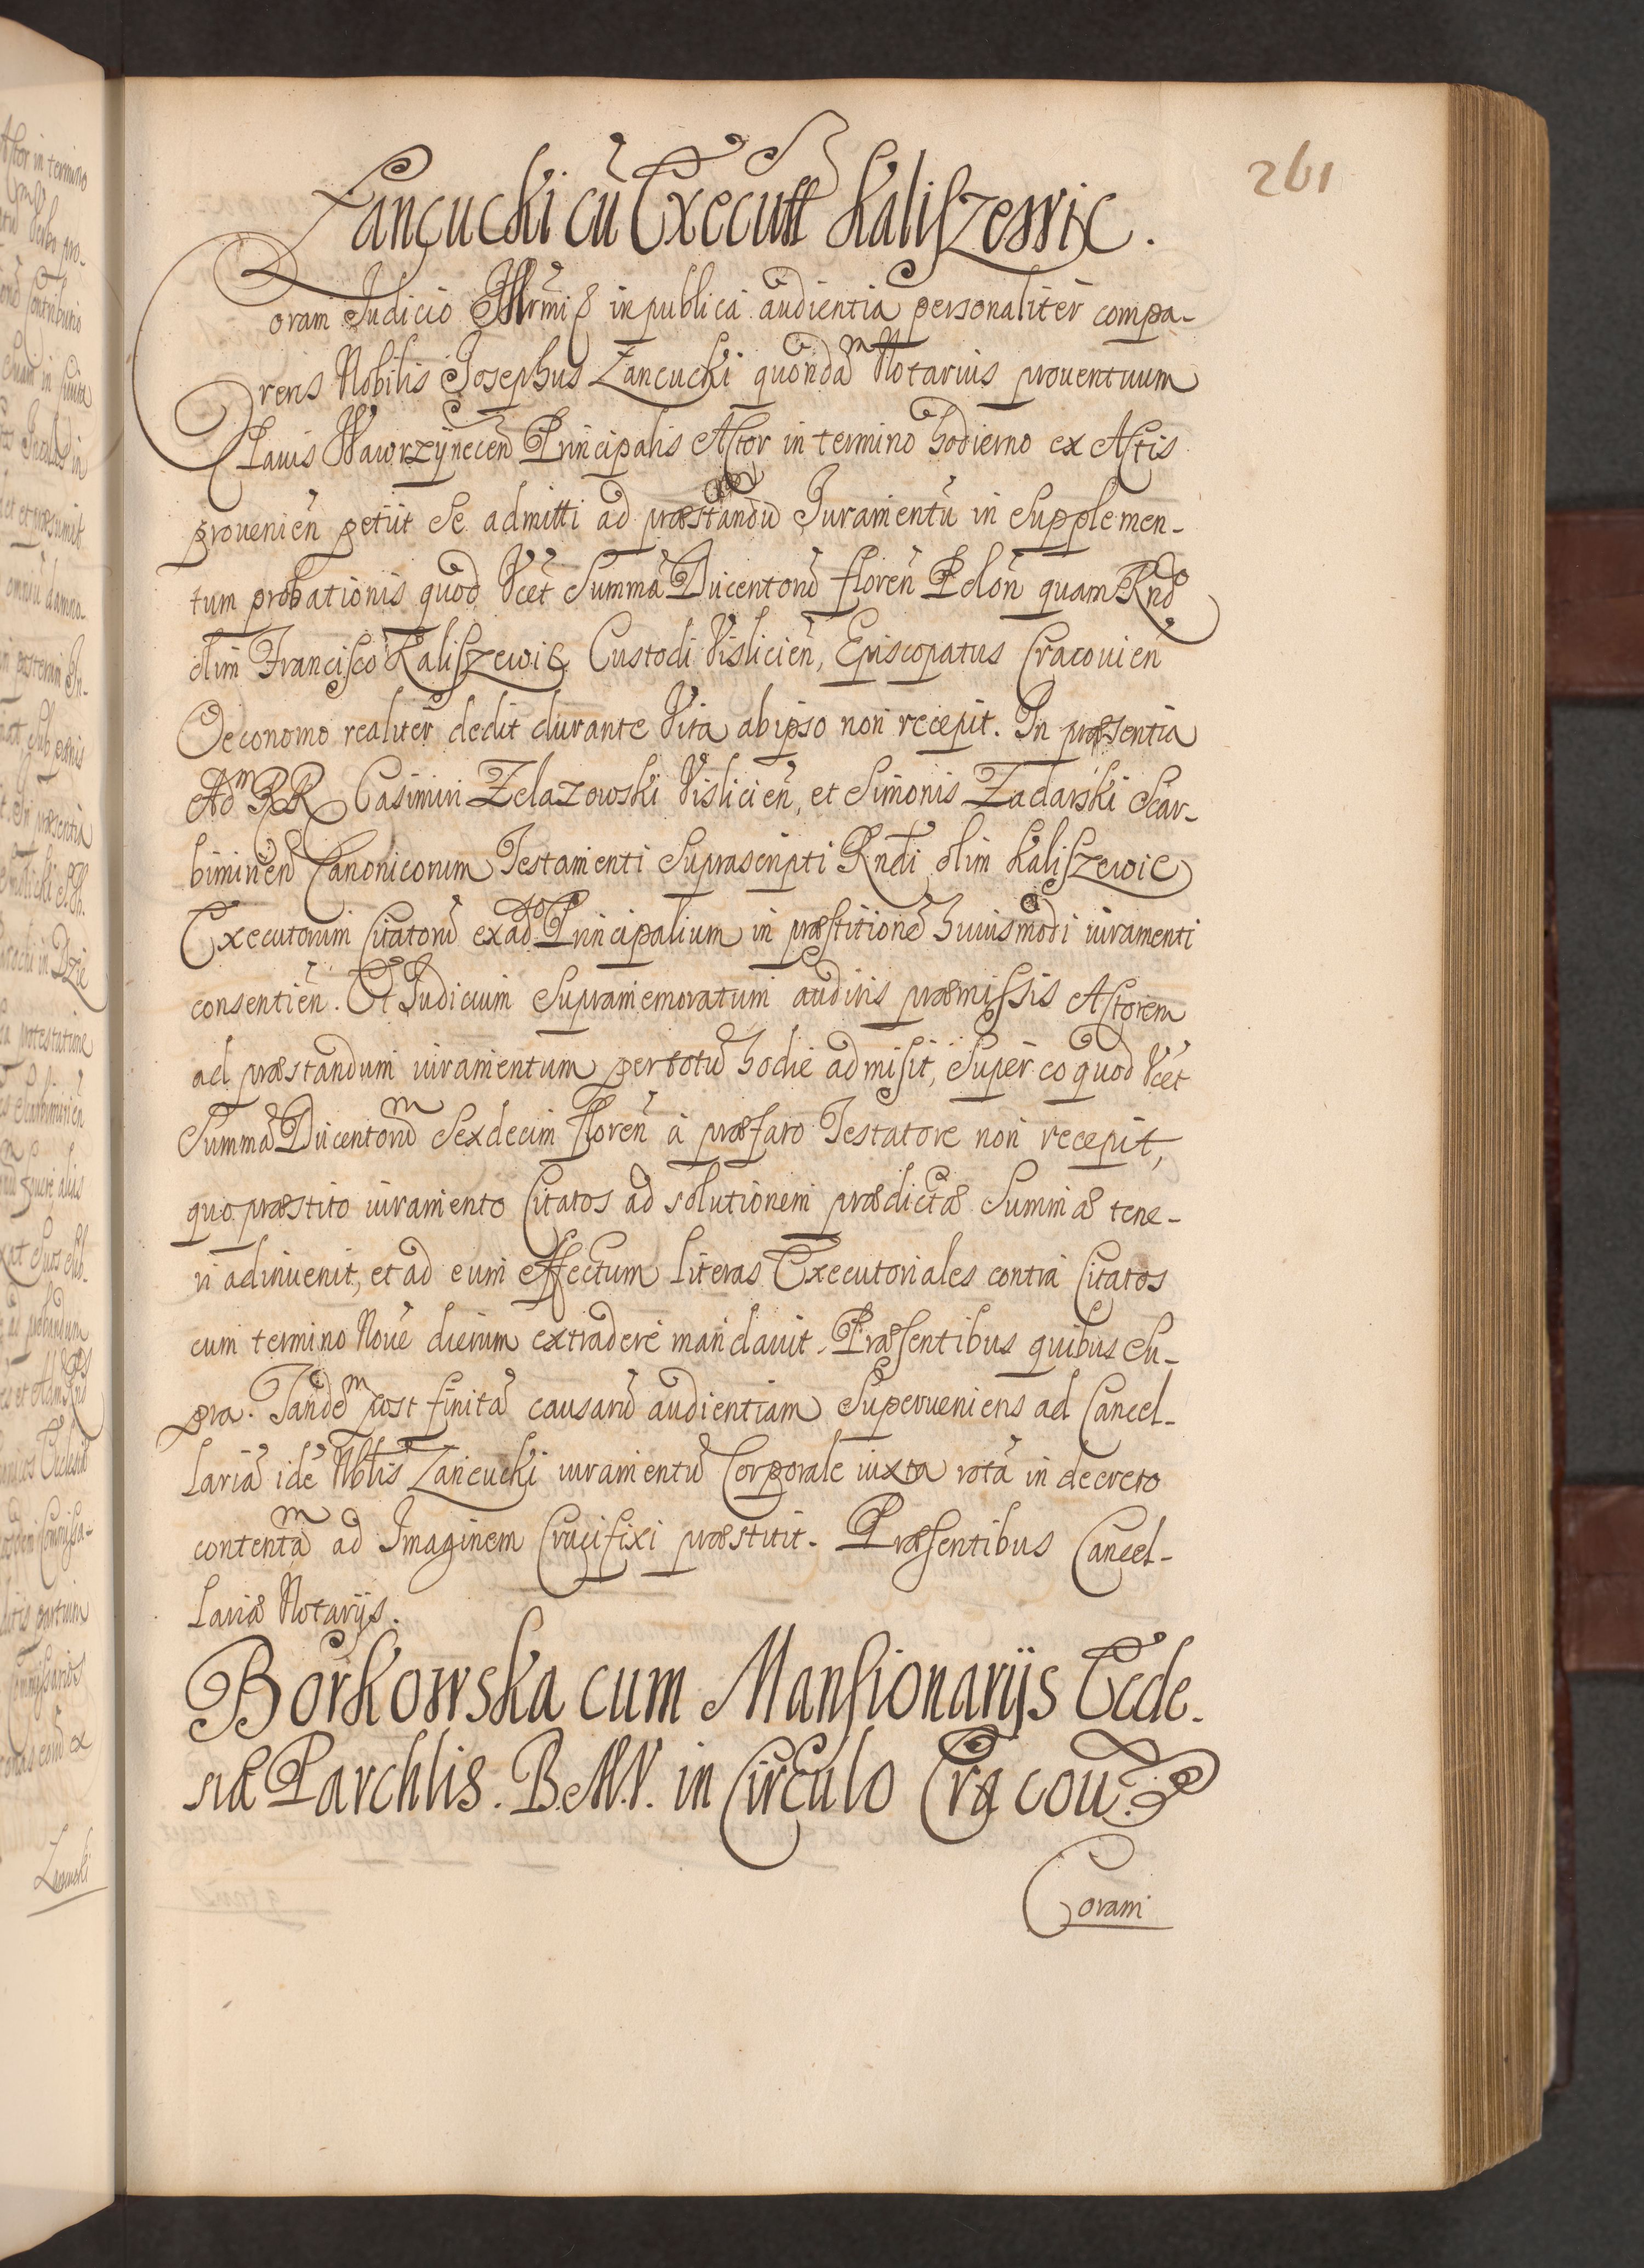 261
Łancucki cū Executt Kaliszewic.
Coram Judicio Illrmi &c in publica audientia personaliter compa-
rens Nobilis Josephus Łancucki quondam Notarius prouentuum
Clauis Wawrzynecen Principalis Actor in termino hodierno ex Actis
prouenien petiit Se admitti ad præstandū Juramentū in Supplemen-
tum probationis quod Vcet Summā Ducentorū floren Polon quam Rndo
olim Francisco Kaliszewic Custodi Vislicien, Episcopatus Cracouien
Oeconomo realiter dedit durante Vita ab ipso non recepit. In præsentia
Adm RR Casimiri Zelazowski Vislicien, et Simonis Zadarski Scar-
bimirien Canonicorum Testamenti Suprascripti Rndi olim Kaliszewic
Executorum Citatorū ex adso Principalium in præstitionē huiusmodi iuramenti
consentien. Et Judicium Supramemoratum auditis præmissis Actorem
ad præstandum iuramentum per totū hodie admisit, Super eo quod Vcet
Summam Ducentorū Sexdecim floren à præfato Testatore non recepit,
quo præstito iuramento Citatos ad solutionem prædictæ Summæ tene-
ri adinuenit, et ad eum effectum literas Executoriales contra Citatos
cum termino Nouē dierum extradere mandauit. Præsentibus quibus Su-
pra. Tandem post finitā causarū audientiam Superueniens ad Cancel-
lariā idē Nblis Łancucki iuramentū Corporale iuxta rotā in decreto
contentam ad Imaginem Crucifixi præstitit. Præsentibus Cancel-
lariæ Notarijs.
Borkowska cum Mansionarijs Eccle-
siæ Parchlis. B.M.V. in Circulo Cracou.
Coram